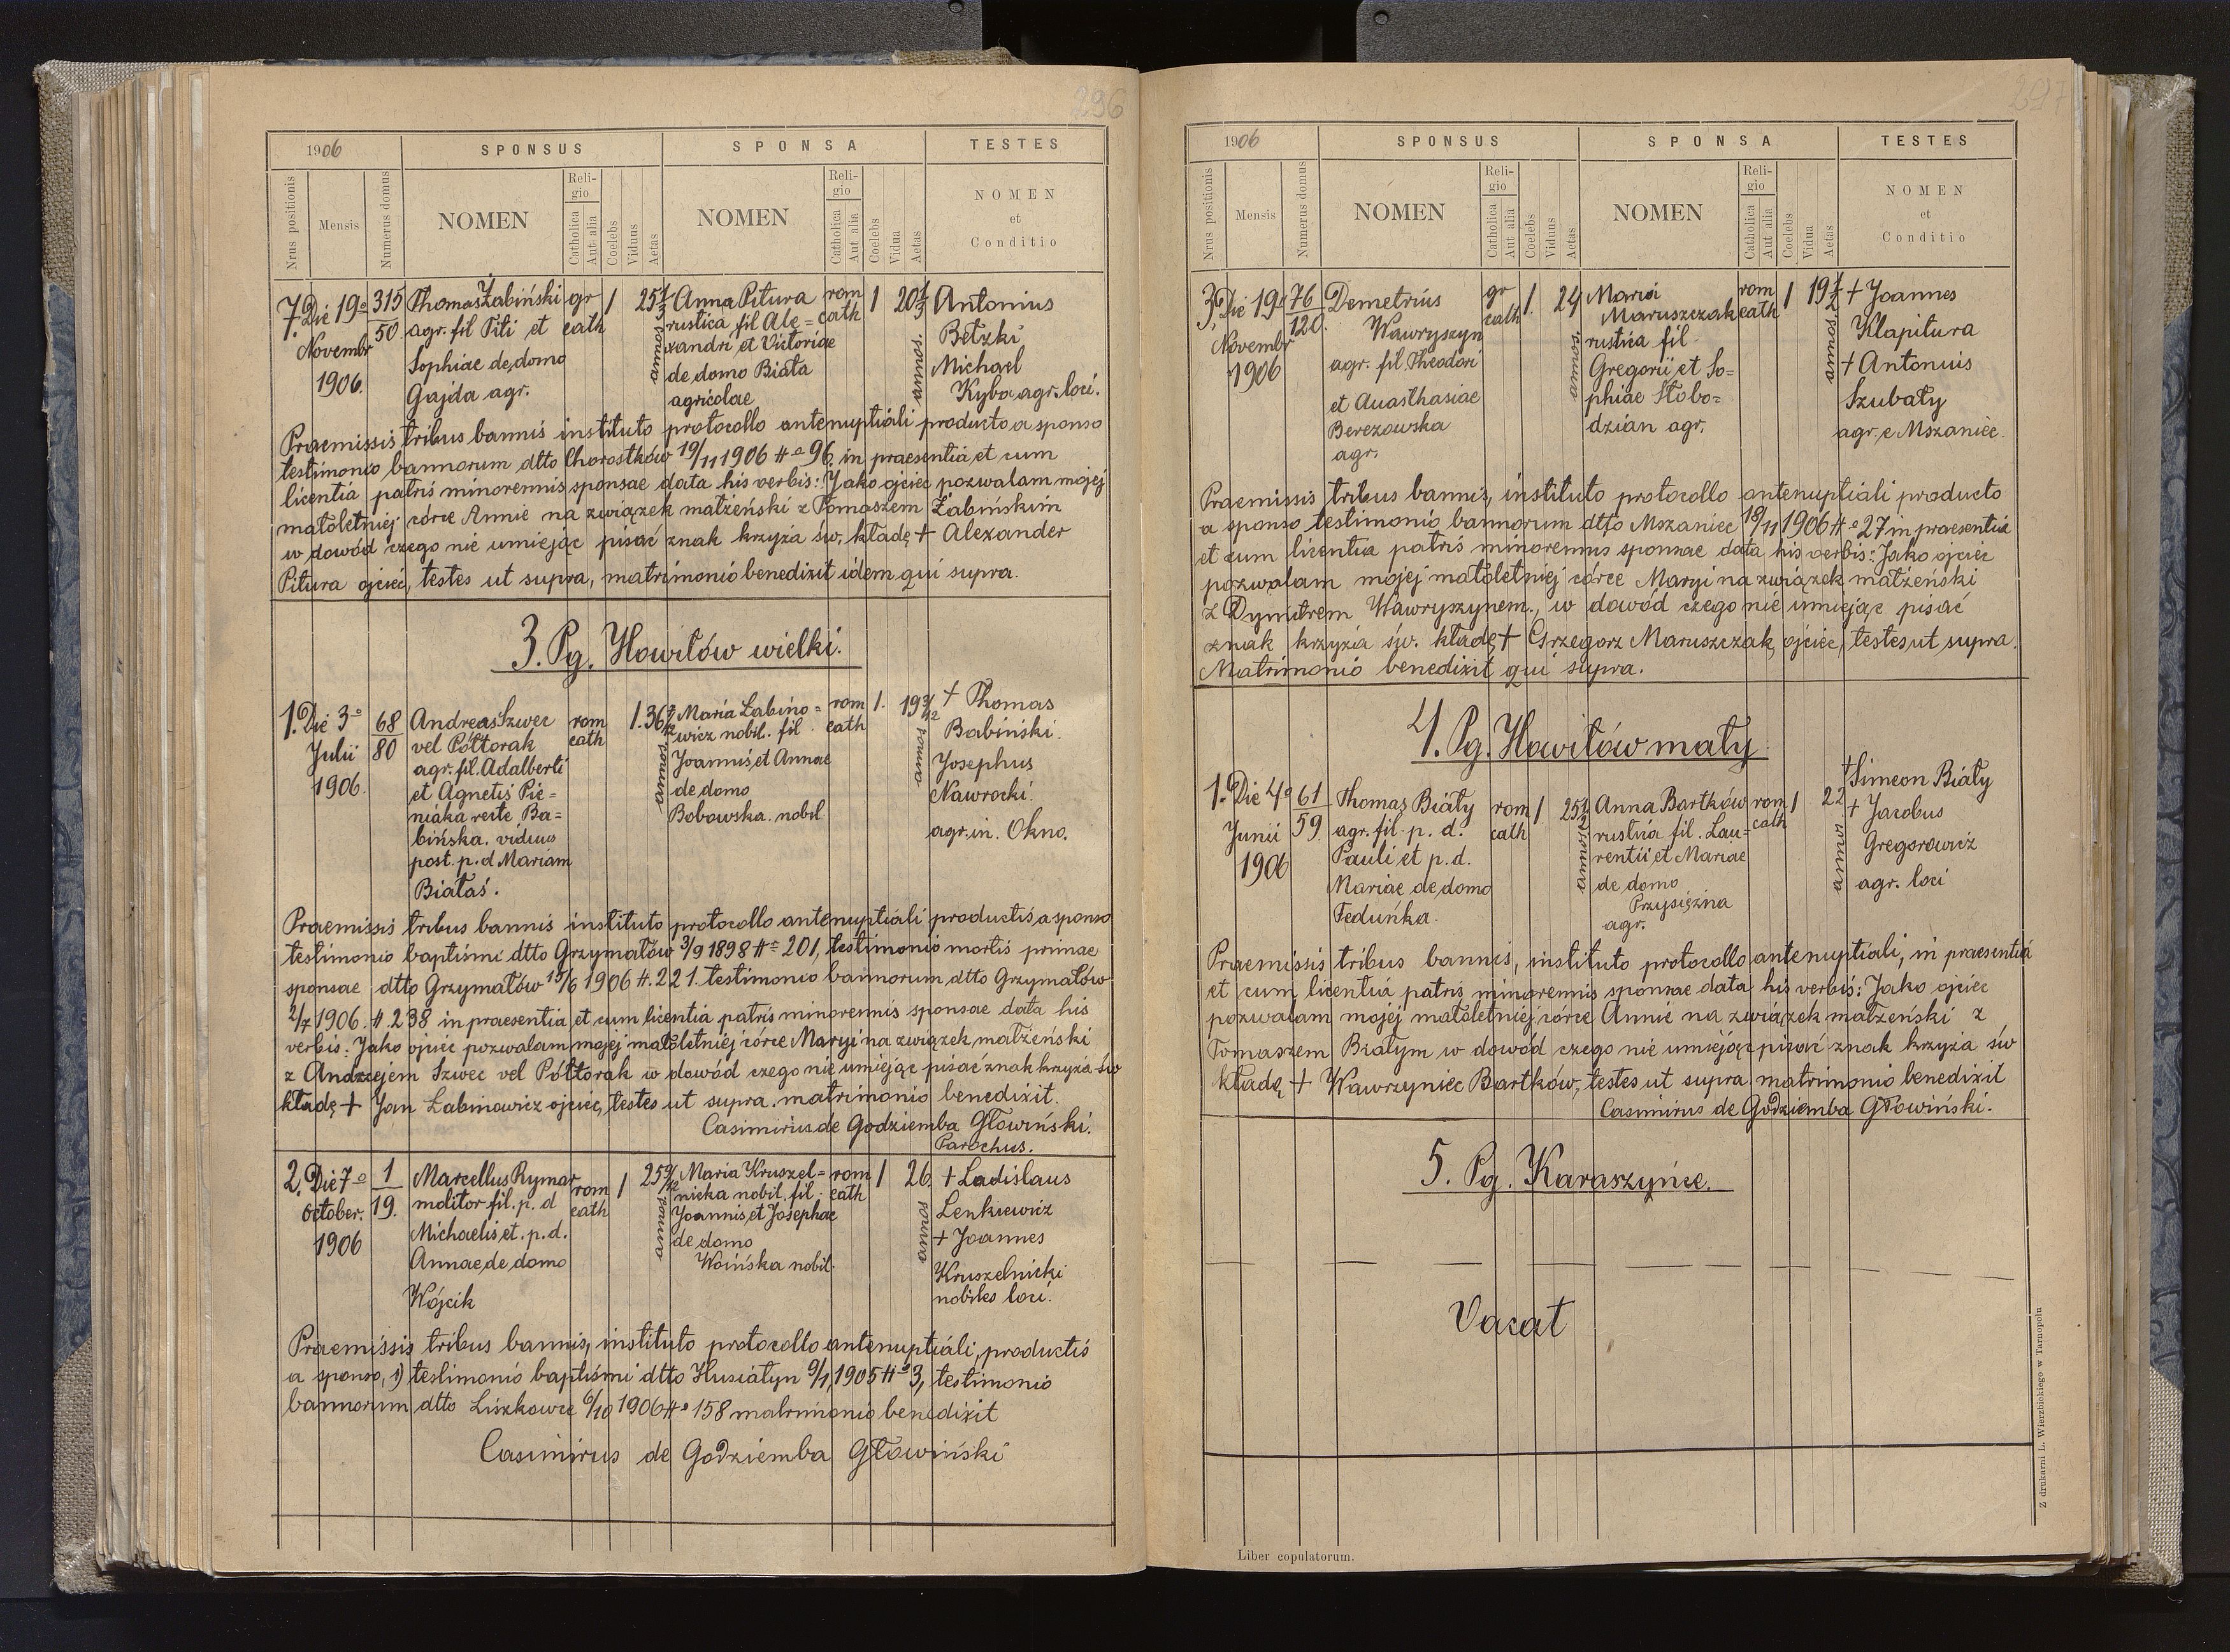 296
1906
SPONSUS
SPONSA
TESTES
Nrus positionis
Mensis
Numerus domus
NOMEN
Religio
Catholica
Aut alia
Coelebs
Viduus
Aetas
NOMEN
Religio
Catholica
Aut alia
Coelebs
Vidua
Aetas
NOMEN
et
Conditio
7. Die 19º
Novembr
1906.
315
50.
Thomas Żabiński
agr. fil Titi et
Sophiae de domo
Gajda agr.
gr
cath
1
25 1/3
annos
Anna Pitura
rustica fil Ale=
xandri et Victoriae
de domo Biała
agricolae
rom
cath
1
20 1/3
annos.
Antonius
Betzki
Michael
Kyba agr. loci.
Praemissis tribus bannis instituto protocollo antenuptiali producto a sponso
testimonio bannorum dtto Chorostków 19/11 1906 #º 96. in praesentia et cum
licentia patris minorennis sponsae data his verbis: Jako ojciec pozwalam mojej
małoletniej córce Annie na związek małżeński z Tomaszem Żabińskim
w dowód czego nie umiejąc pisać znak krzyża św. kładę + Alexander
Pitura ojciec, testes ut supra, matrimonio benedixit idem qui supra.
3. Pg. Howiłów wielki.
1. Die 3º
Julii
1906.
68
80
Andreas Szwec
vel Półtorak
agr. fil. Adalberti
et Agnetis Pie=
niáka recte Ba=
bińska. viduus
post. p. d Mariam
Białaś.
rom
cath
1. 36 7/12
annos
Maria Łabino=
wicz nobil. fil.
Joannis et Annae
de domo
Bobowska. nobil
rom
cath
1.
19 3/12
annos
+ Thomas
Babiński.
Josephus
Nawrocki.
agr. in. Okno.
Praemissis tribus bannis instituto protocollo antenuptiali productis a sponso
testimonio baptismi dtto Grzymałów 3/9 1898 #º 201, testimonio mortis primae
sponsae dtto Grzymałów 15/6 1906 #. 221. testimonio bannorum dtto Grzymałów
2/7 1906. #. 238 in praesentia et cum licentia patris minorennis sponsae data his
verbis: Jako ojciec pozwalam mojej małoletniej córce Maryi na związek małżeński
z Andrzejem Szwec vel Półtorak w dowód czego nie umiejąc pisać znak krzyża św
kładę + Jan Łabinowicz ojciec, testes ut supra. matrimonio benedixit.
Casimirius de Godziemba Głowiński.
Parochus.
2. Die 7º
October.
1906
1
19.
Marcellus Rymar
molitor fil. p. d
Michaelis et. p. d.
Annae de domo
Wójcik
rom
cath
1
25 9/12
annos
Maria Kruszel=
nicka nobil. fil.
Joannis et Josephae
de domo
Woińska nobil.
rom
cath
1
26.
annos
+ Ladislaus
Lenkiewicz
+ Joannes
Kruszelnicki
nobiles loci.
Praemissis tribus bannis, instituto protocollo antenuptiali, productis
a sponso, 1) testimonio baptismi dtto Husiatyn 9/1 1905 #º 3, testimonio
bannorum dtto Liczkowce 6/10 1906 #º 158 matrimonio benedixit
Casimirus de Godziemba Głowiński
297
1906
SPONSUS
SPONSA
TESTES
Nrus positionis
Mensis
Numerus domus
NOMEN
Religio
Catholica
Aut alia
Coelebs
Viduus
Aetas
NOMEN
Religio
Catholica
Aut alia
Coelebs
Vidua
Aetas
NOMEN
et
Conditio
3. Die 19º
Novembr
1906
76
120.
Demetrius
Wawryszyn
agr. fil. Theodori
et Anasthasiae
Berezowska
agr.
gr
cath
1.
24
annos.
Maria
Maruszczak
rustica fil.
Gregorii et So=
phiae Słobo=
dzian agr.
rom
cath
1
19 1/2
annos
+ Joannes
Klapitura
+ Antonius
Szubaty
agr. e Mszaniec.
Praemissis tribus bannis, instituto protocollo antenuptiali producto
a sponso testimonio bannorum dtto Mszaniec 18/11 1906 #º 27 in praesentia
et cum licentia patris minorennis sponsae data his verbis: Jako ojciec
pozwalam mojej małoletniej córce Maryi na związek małżeński
z Dymitrem Wawryszynem., w dowód czego nie umiejąc pisać
znak krzyża św. kładę + Grzegorz Maruszczak, ojciec, testes ut supra.
Matrimonio benedixit qui supra.
4. Pg. Howiłów mały.
1. Die 4º
Junii
1906
61
59.
Thomas Biały
agr. fil. p. d.
Pauli et p. d.
Mariae de domo
Feduńka.
rom
cath
1.
25 1/2
annos
Anna Bartków
rustica fil. Lau=
rentii et Mariae
de domo
Przysiężna
agr.
rom
cath
1
22
annos.
+ Simeon Biały
+ Jacobus
Gregorowicz
agr. loci
Praemissis tribus bannis, instituto protocollo antenuptiali, in praesentia
et cum licentia patris minorennis sponsae data his verbis: Jako ojciec
pozwalam mojej małoletniej córce Annie na związek małżeński z
Tomaszem Białym w dowód czego nie umiejąc pisać znak krzyża św
kładę + Wawrzyniec Bartków, testes ut supra matrimonio benedixit
Casimirus de Godziemba Głowiński.
5. Pg. Karaszyńce.
Vacat
Liber copulatorum.
Z drukarni L. Wierzbickiego w Tarnopolu